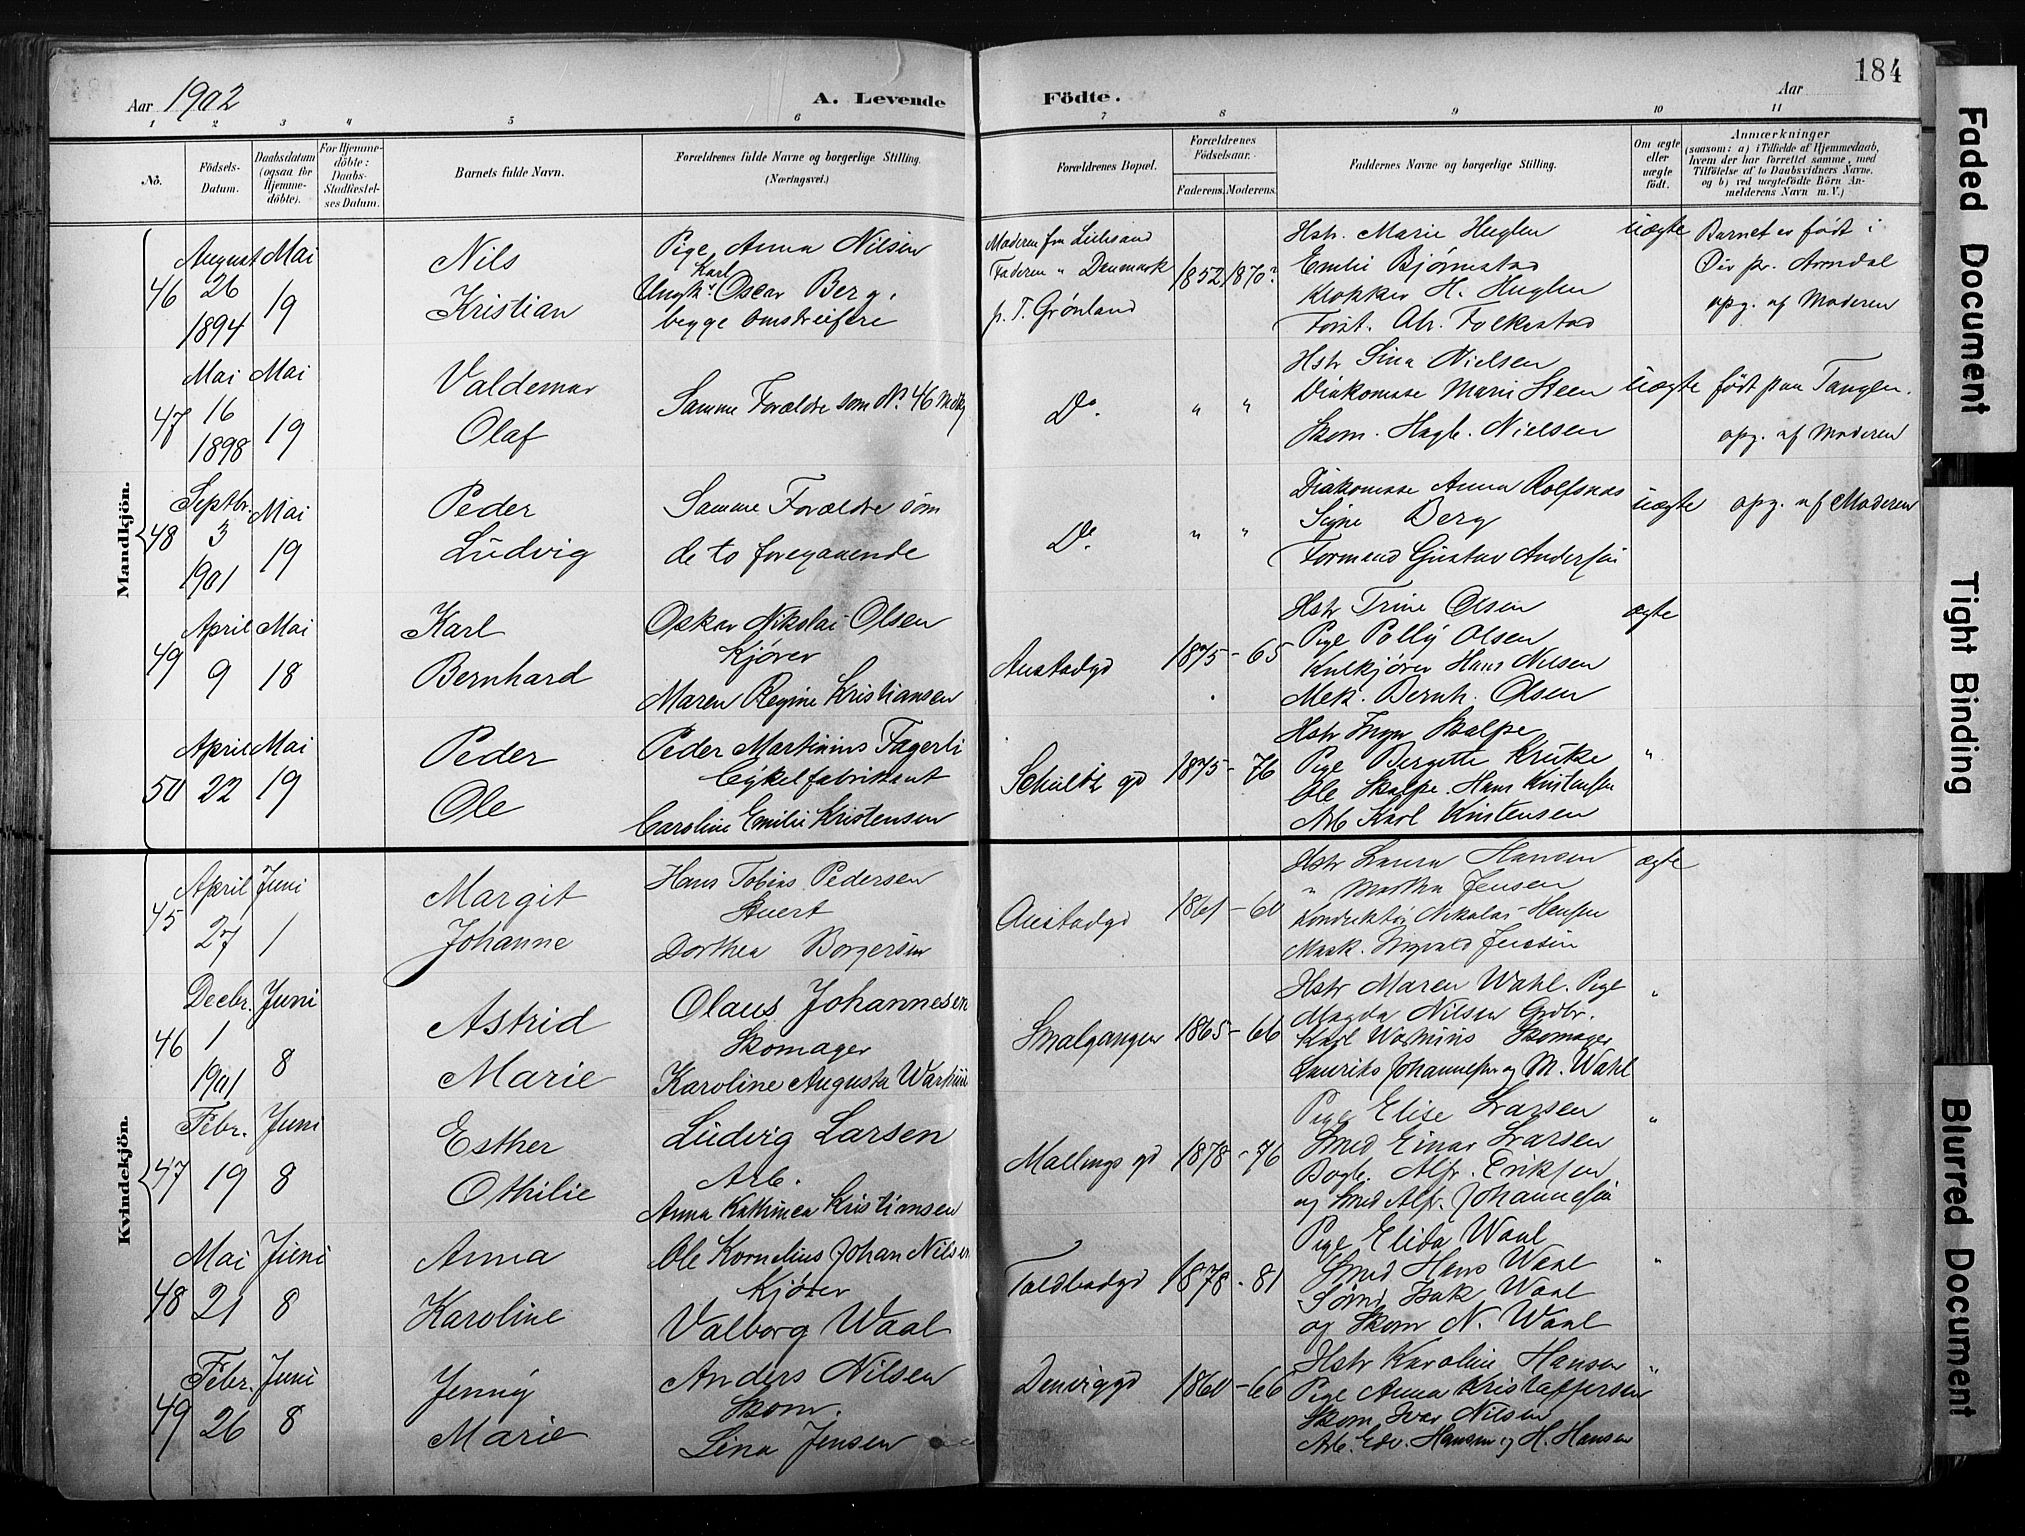 184
Aar 1902
A. Levende Födte.
Aar
1 2 3 4 5 6 7 8 9 10 11
No.
Födsels-Datum.
Daabsdatum (ogsaa for Hjemme-döbte).
For Hjemme-döbte: Daabs-Stadfæstel-ses Datum.
Barnets fulde Navn.
Forældrenes fulde Navne og borgerlige Stilling. (Næringsvei.)
Forældrenes Bopæl.
Forældrenes Födselsaar.
Faderens. Moderens.
Faddernes Navne og borgerlige Stilling.
Om ægte eller uægte födt.
Anmærkninger
(saasom: a) i Tilfælde af Hjemmedaab, hvem der har forrettet samme, med Tilföielse af to Daabsvidners Navne, og b) ved uægtefödte Börn An-melderens Navn m. V.)
Mandkjön.
46
August 26 1894
Mai 19
Nils Kristian
Pige Anna Nilsen
Karl
Ungk. Oscar Berg.
begge omstreifere
Moderen fra
Faderen " Danmark
p. T. Grønland
1852 1870?
Hstr. Marie Huglen
Emilie Bjørnstad
Klokker H. Huglen
Forst. Ab. Folkestad
uægte
Barnet er født i
pr. Arendal
opg. af Moderen
47
Mai 16 1898
Mai 19
Valdemar Olaf
Samme Forældre som No. 46
Do.
" "
Hstr Sina Nielsen
Diakonisse Marie Steen
Skom. Hagb. Nielsen
uægte
født paa Tangen.
opg. af Moderen
48
Septbr. 3 1901
Mai 19
Peder Ludvig
Samme Forældre som
de to foregaaende
Do.
" "
Diakonisse Anna Rolfsnas
Signe Berg
Formand Gustav Andersen
uægte
opg. af Moderen
49
April 9
Mai 18
Karl Bernhard
Oskar Nikolai Olsen
Kjører
Maren Regine Kristiansen
Austadgd
1875 - 65
Hstr Trine Olsen
Pige Polly Olsen
Kulkjører Hans Nilsen
Mek. Bernh. Olsen
ægte
50
April 22
Mai 19
Peder Ole
Peder Martinius Fagerli
Cykelfabrikant
Caroline Emilie Kristensen
Schultz gd
1875 - 76
Hstr Inger Skalpe
Pige Bergette Kruke
Ole Skalpe. Hans Kristensen
Arb Karl Kristensen
"
Kvindekjön.
45
April 27
Juni 1
Margit Johanne
Hans Tobias Pedersen
Stuert
Dorthea Borgersen
Austadgd
1861 - 60
Hstr Laura Hansen
" Martha Jensen
Konduktør Nikolas Hansen
Mask. Ingvald Jensen
ægte
46
Decbr. 1 1901
Juni 8
Astrid Marie
Olaus Johannesen
Skomager
Karoline Augusta
Smalgangen
1865 - 66
Hstr Maren Wahl. Pige
Magda Nilsen Grdbr.
Karl Skomager
Laurits Johannesen og M. Wahl
"
47
Febr. 19
Juni 8
Esther Othilie
Ludvig Larsen
Arb.
Anna Kathinea Kristiansen
Mallings gd
1878 - 76
Pige Elise Larsen
Smed Einar Larsen
Bogb. Alfr. Eriksen
og Smed Alfr. Johannesen
"
48
Mai 21
Juni 8
Anna Karoline
Ole Kornelius Johan Nilsen
Kjører
Valborg Waal
Toldbodgd
1878 - 81
Pige Elida Waal
Smed Hans Waal
Sømd Isak Waal
og Skom N. Waal
"
49
Febr. 26
Juni 8
Jenny Marie
Anders Nilsen
Skom.
Lina Jensen
Denviggd
1860 - 66
Hstr Karoline Hansen
Pige Anna Kristoffersen
Skom Ivar Nilsen
Arb. Edv. Hansen og H. Hansen
"
Faded Document
Tight Binding
Blurred Document